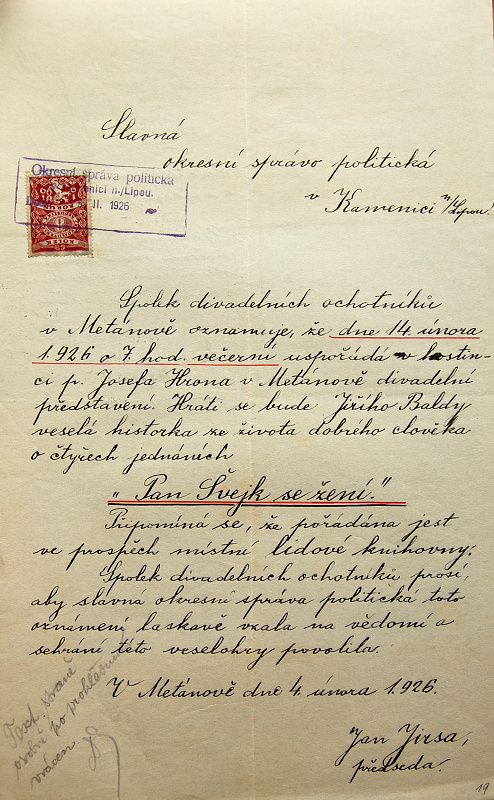 Slavná
okresní správo politická
v Kamenici n/Lipou.
Okresní správa politická
enici n./Lipou.
II. 1926
Spolek divadelních ochotníků
v Metánově oznamuje, že dne 14. února
1.926 o 7. hod. večerní uspořádá v hostin-
ci p. Josefa Hrona v Metánově divadelní
představení. Hráti se bude Jiřího Baldy
veselá historka ze života dobrého člověka
o čtyřech jednáních
„Pan Švejk se žení."
Připomíná se, že pořádána jest
ve prospěch místní lidové knihovny.
Spolek divadelních ochotníků prosí,
aby slavná okresní správa politická toto
oznámení laskavě vzala na vědomí a
sehrání této veselohry povolila.
V Metánově dne 4. února 1.926.
Jan Jirsa,
předseda.
Text straně
osobě po prohlédnutí
vrácen.
19